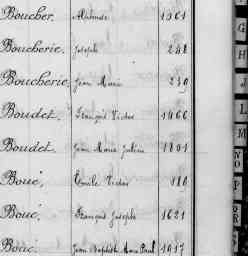 Boucher, Alphonse 1961
Boucherie, Joseph 248
Boucherie, Jean Marie 239
Boudet, François Victor 1966
Boudet, Jean Marie Julien 1801
Boué, Emile Victor 186
Boué, François Joseph 1621
Boué, Jean Baptiste Marie Paul 1917
G
H
J
L
M
NO
P